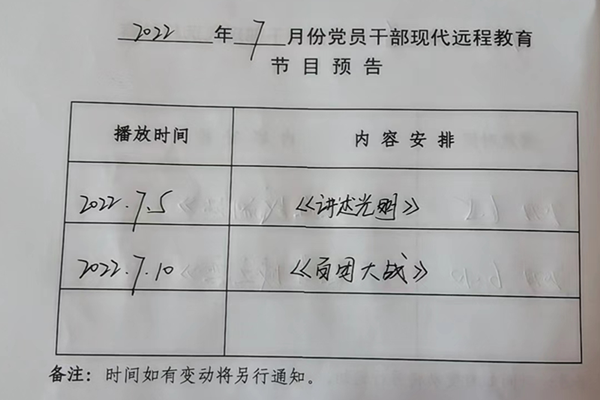 2022 年 7 月份党员干部现代远程教育
节目预告
播放时间 内容安排
2022.7.5 《讲述光明》
2022.7.10 《百团大战》
备注：时间如有变动将另行通知。